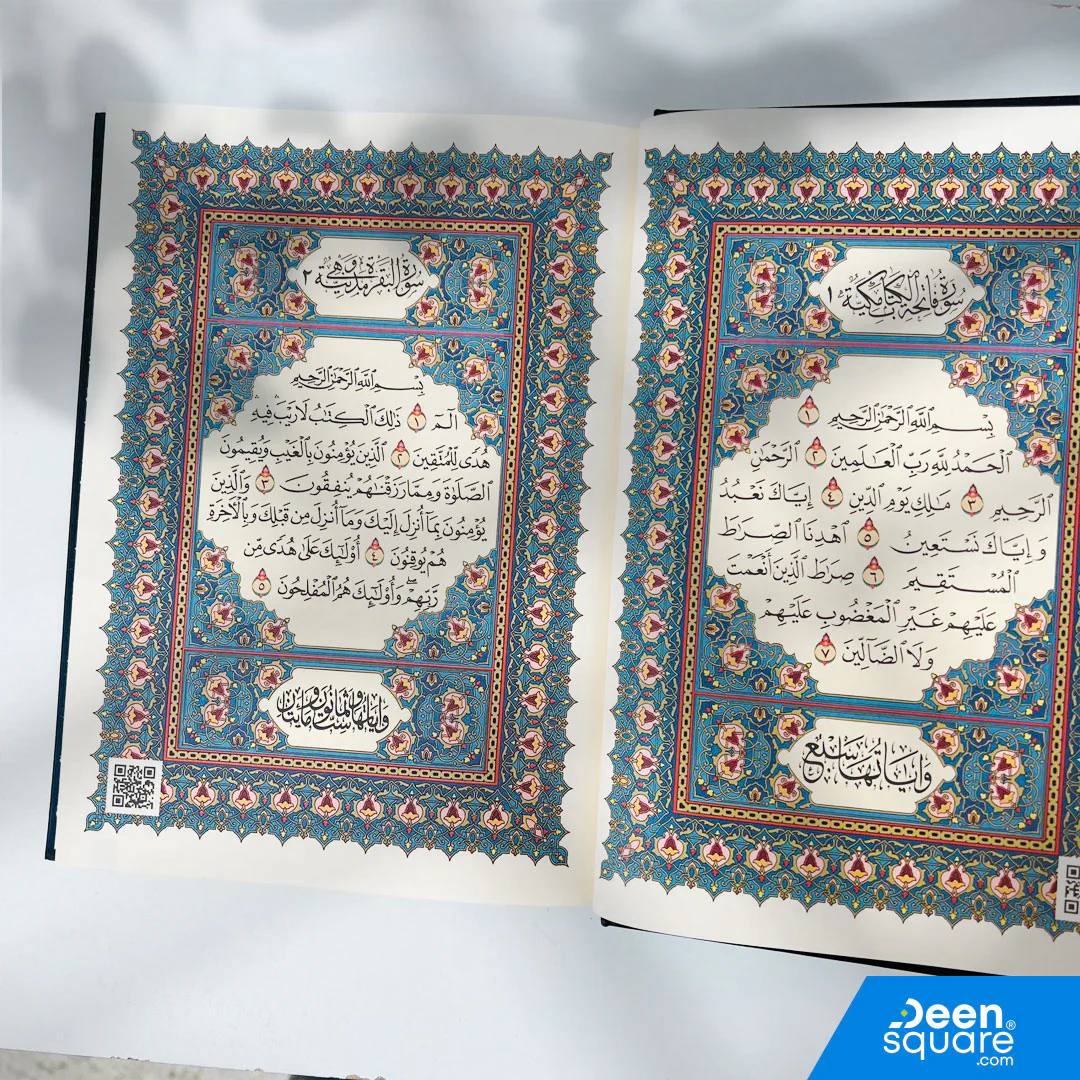 سورة فاتحة الكتاب مكية ١
بِسْمِ ٱللَّهِ ٱلرَّحْمَٰنِ ٱلرَّحِيمِ ١
ٱلْحَمْدُ لِلَّهِ رَبِّ ٱلْعَٰلَمِينَ ٢ ٱلرَّحْمَٰنِ
ٱلرَّحِيمِ ٣ مَٰلِكِ يَوْمِ ٱلدِّينِ ٤ إِيَّاكَ نَعْبُدُ
وَإِيَّاكَ نَسْتَعِينُ ٥ ٱهْدِنَا ٱلصِّرَٰطَ
ٱلْمُسْتَقِيمَ ٦ صِرَٰطَ ٱلَّذِينَ أَنْعَمْتَ
عَلَيْهِمْ غَيْرِ ٱلْمَغْضُوبِ عَلَيْهِمْ
وَلَا ٱلضَّآلِّينَ ٧
وآياتها سبع
سورة البقرة وهي مدنية ٢
بِسْمِ ٱللَّهِ ٱلرَّحْمَٰنِ ٱلرَّحِيمِ
الٓمٓ ١ ذَٰلِكَ ٱلْكِتَٰبُ لَا رَيْبَ ۛ فِيهِ ۛ
هُدًى لِّلْمُتَّقِينَ ٢ ٱلَّذِينَ يُؤْمِنُونَ بِٱلْغَيْبِ وَيُقِيمُونَ
ٱلصَّلَوٰةَ وَمِمَّا رَزَقْنَٰهُمْ يُنفِقُونَ ٣ وَٱلَّذِينَ
يُؤْمِنُونَ بِمَآ أُنزِلَ إِلَيْكَ وَمَآ أُنزِلَ مِن قَبْلِكَ وَبِٱلْأٓخِرَةِ
هُمْ يُوقِنُونَ ٤ أُو۟لَٰٓئِكَ عَلَىٰ هُدًى مِّن
رَّبِّهِمْ ۖ وَأُو۟لَٰٓئِكَ هُمُ ٱلْمُفْلِحُونَ ٥
وآياتها مائتان وست وثمانون
Deen®
square
.com